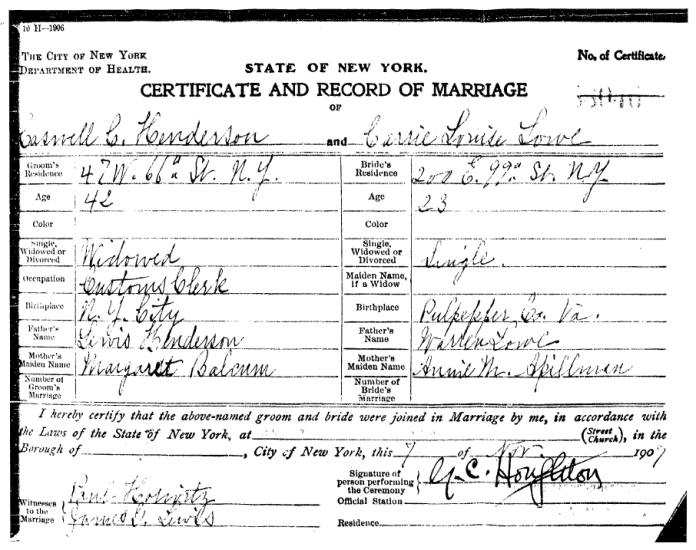 10 H—1906
THE CITY OF NEW YORK
DEPARTMENT OF HEALTH.
STATE OF NEW YORK.
No. of Certificate.
CERTIFICATE AND RECORD OF MARRIAGE
OF
Caswell C. Henderson and Carrie Louise Lowe
Groom's Residence 47 W. 66th St. N.Y.
Bride's Residence 200 E. 99th St. N.Y.
Age 42
Age 23
Color
Color
Single, Widowed or Divorced Widowed
Single, Widowed or Divorced Single.
Occupation Customs Clerk
Maiden Name, if a Widow
Birthplace N.Y. City
Birthplace Pulpepper Co. Va.
Father's Name Lewis Henderson
Father's Name Warren Lowe
Mother's Maiden Name Margaret Balcum
Mother's Maiden Name Annie M. Spillman
Number of Groom's Marriage
Number of Bride's Marriage
I hereby certify that the above-named groom and bride were joined in Marriage by me, in accordance with
the Laws of the State of New York, at (Street Church), in the
Borough of , City of New York, this 7 of Nov 1907
Signature of person performing the Ceremony G. C. Houghton
Official Station
Witnesses to the Marriage
James D. Lewis
Residence